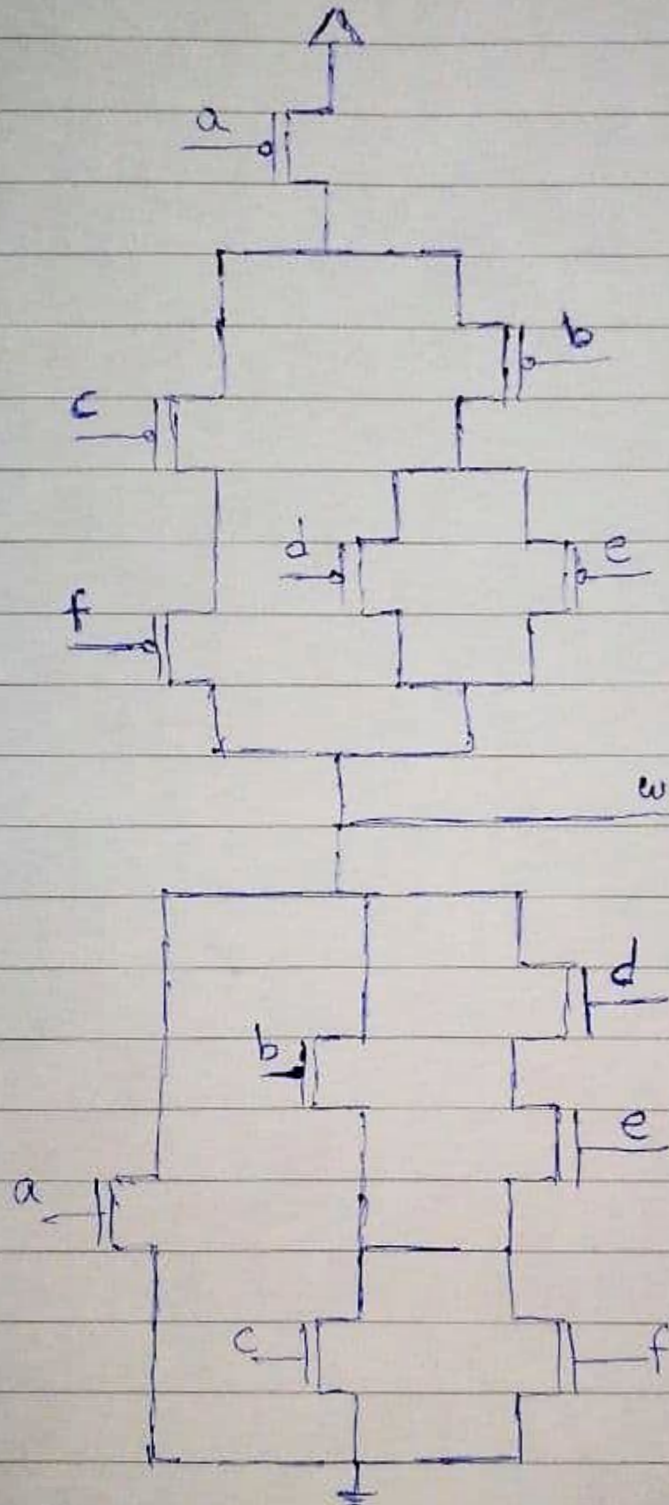 a
b
c
d
e
f
w
d
b
e
a
c
f